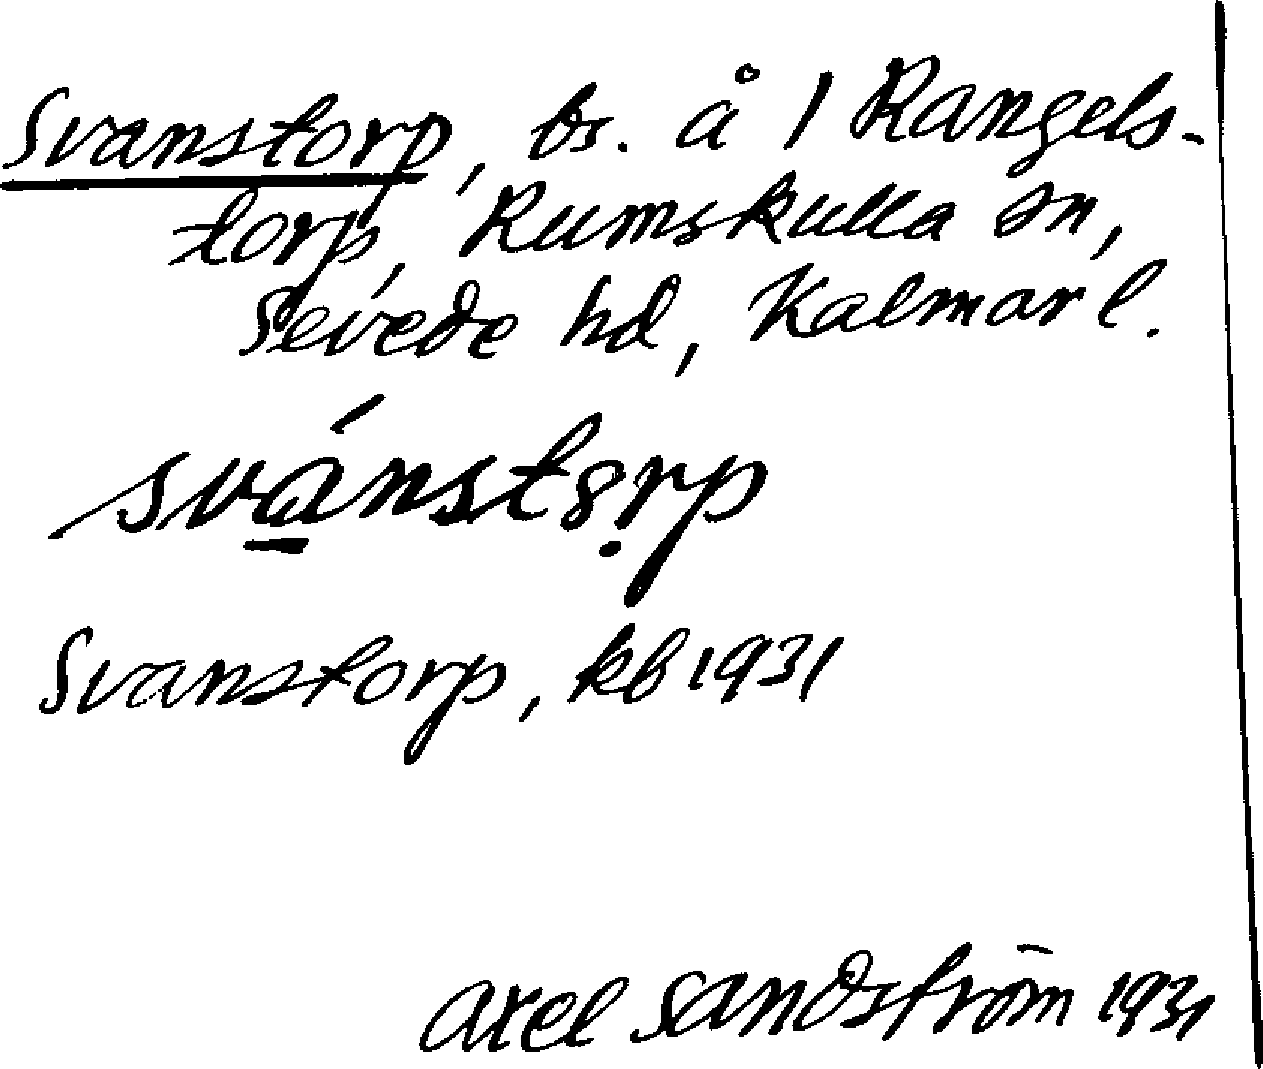 Svanstorp, bs. å 1 Rangels-
torp, Rumskulla sn,
Sevede hd, Kalmar l.
svánstọrp
Svanstorp, kb 1931
Axel Sandström 1931